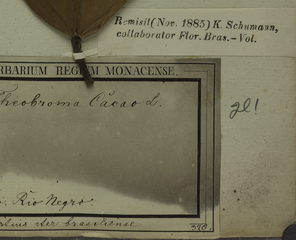 Remisit (Nov. 1885) K. Schumann,
collaborator Flor. Bras.- Vol.
RBARIUM REGIUM MONACENSE.
Theobroma Cacao L.
Rio Negro.
iter brasiliense